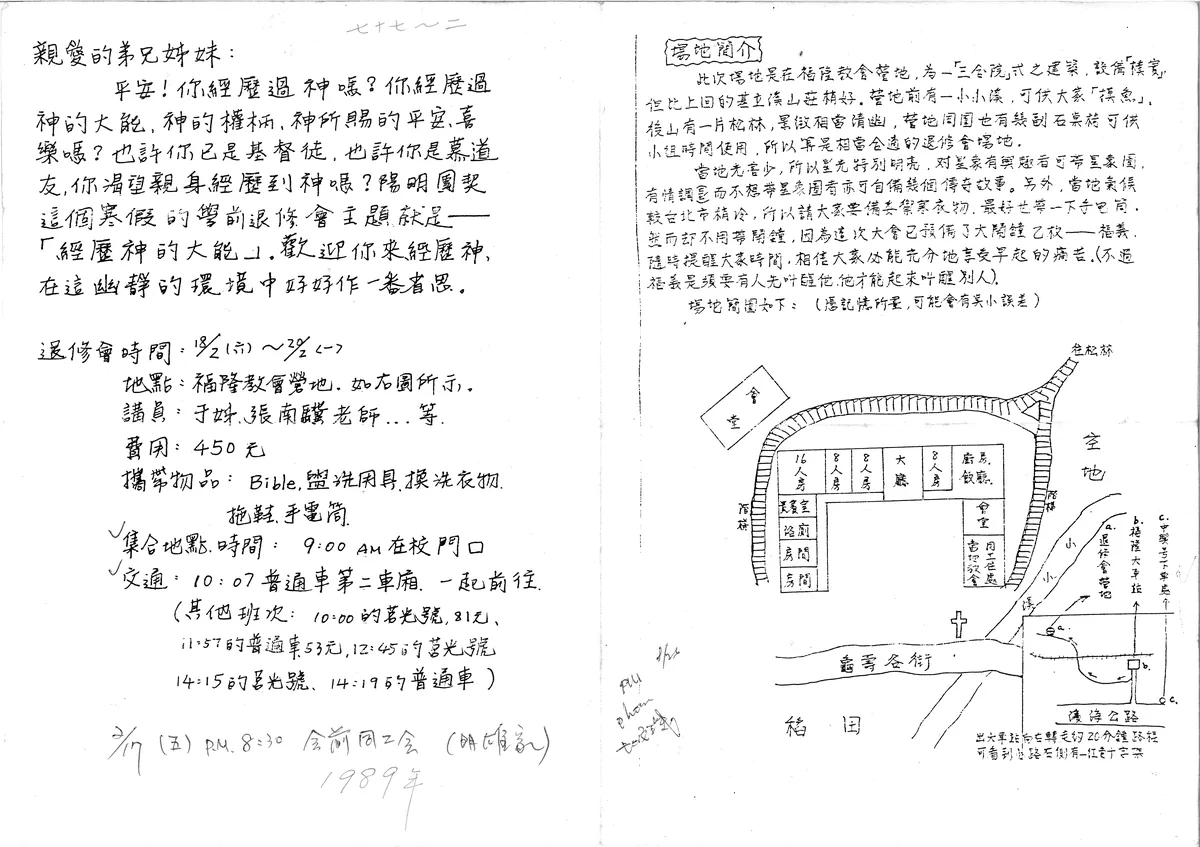 七十七~二
親愛的弟兄姊妹：
平安！你經歷過神嗎？你經歷過
神的大能，神的權柄，神所賜的平安、喜
樂嗎？也許你已是基督徒，也許你是慕道
友，你渴望親身經歷到神嗎？陽明團契
這個寒假的學前退修會主題就是——
「經歷神的大能」。歡迎你來經歷神，
在這幽靜的環境中好好作一番省思。
退修會時間：18/2(六)～20/2(一)
地點：福隆教會營地．如右圖所示。
講員：于姊、張南驥老師...等．
費用：450元
攜帶物品：Bible，盥洗用具、換洗衣物．
拖鞋、手電筒．
✓集合地點、時間：9:00 AM在校門口
✓交通：10:07普通車第二車廂．一起前往．
(其他班次：10:00的莒光號，81元、
11:57的普通車53元，12:45的莒光號
14:15的莒光號、14:19的普通車)
2/17 (五) P.M. 8:30 会前同工会 (明雄家)
1989年
場地簡介
此次場地是在福隆教會營地，為一「三合院」式之建築，設備「樸實」，
但比上回的基立溪山莊稍好。營地前有一小小溪，可供大家「摸魚」。
後山有一片松林，景緻相當清幽，營地周圍也有幾副石桌椅可供
小組時間使用，所以算是相當合適的退修會場地。
當地光害少，所以星光特別明亮，對星象有興趣者可帶星象圖，
有情調而不想帶星象圖者亦可自備幾個傳奇故事。另外，當地氣候
較台北市稍冷，所以請大家要備妥禦寒衣物．最好也帶一下手電筒，
然而却不用帶鬧鐘，因為這次大會已預備了大鬧鐘乙枚——福義，
隨時提醒大家時間，相信大家必能充分地享受早起的痛苦。(不過
福義是須要有人先叫醒他，他才能起來叫醒別人)。
場地簡圖如下：(憑記憶所畫，可能會有吳小誤差)
往松林
會堂
空地
16人房
8人房
8人房
大廳
8人房
廚房、飲廳
貴賓室
浴廁
房間
房間
會堂
階梯
階梯
小小溪
a.退修會營地
b.福隆火車站
c.中興号下車處
a.
b.
c.
濱海公路
龜壽谷街
稻田
出火車站向右轉走約20分鐘路程
可看到公路左側有一紅色十字架